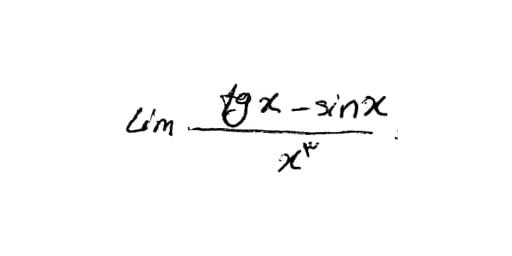 lim (tgx - sinx) / x^۳